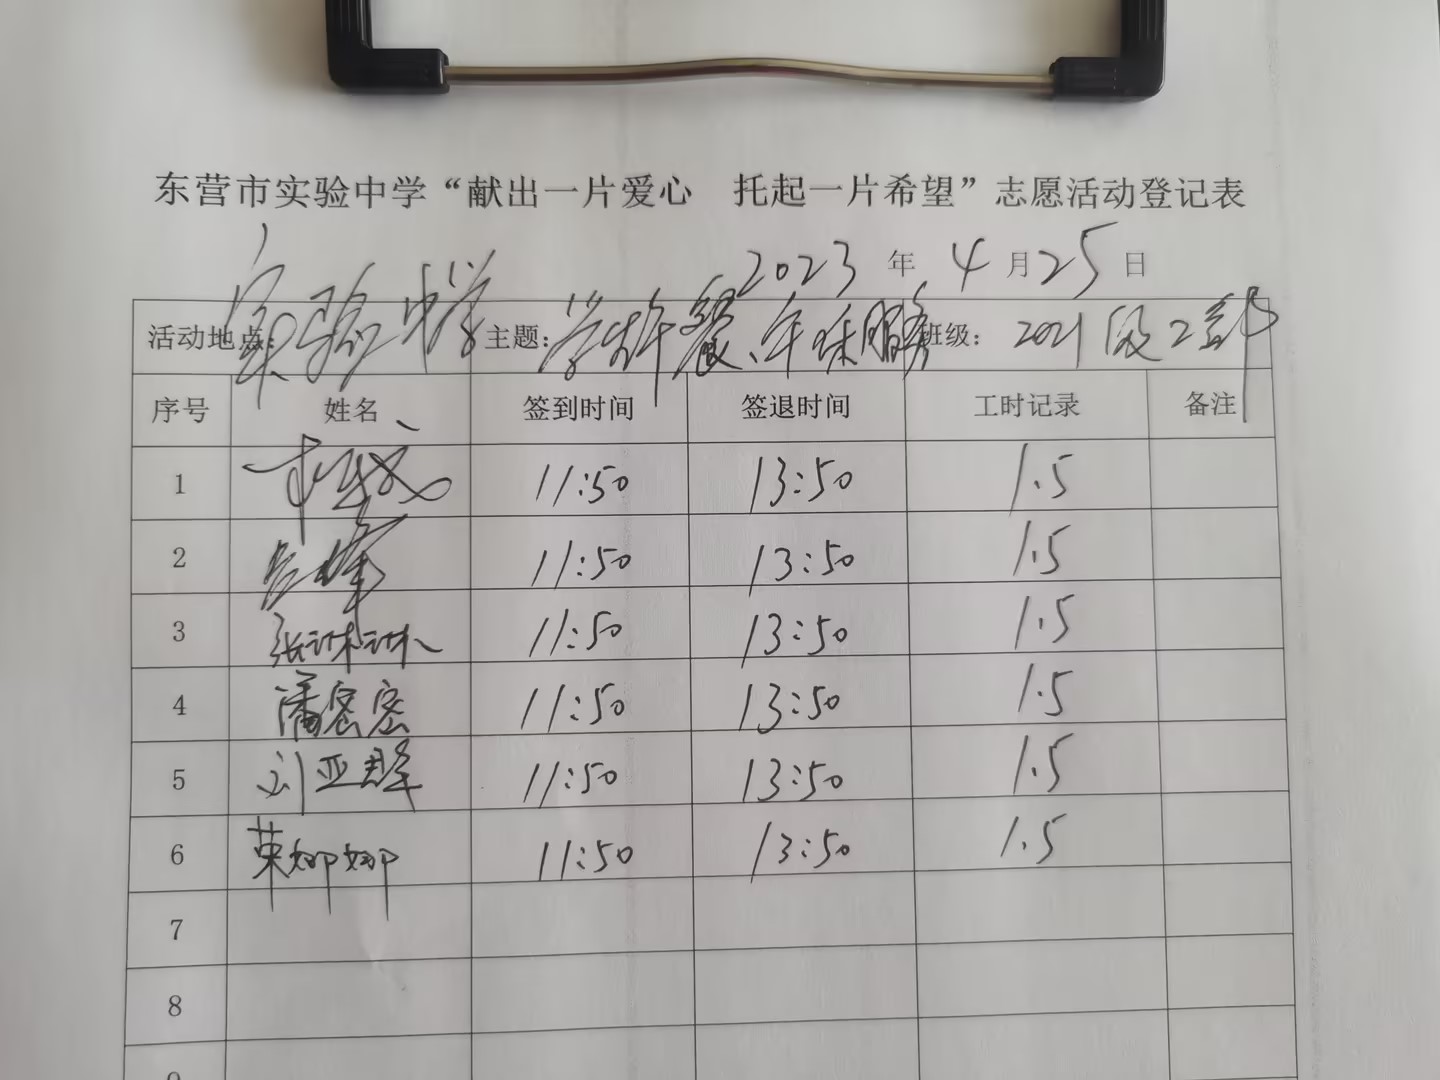 东营市实验中学“献出一片爱心 托起一片希望”志愿活动登记表
2023 年 4 月 25 日
活动地点: 实验中学 主题: 学生午餐、午休服务 班级: 2021级2部
序号 姓名 签到时间 签退时间 工时记录 备注
1 11:50 13:50 1.5
2 11:50 13:50 1.5
3 张琳琳 11:50 13:50 1.5
4 潘密密 11:50 13:50 1.5
5 刘亚群 11:50 13:50 1.5
6 荣娜娜 11:50 13:50 1.5
7
8